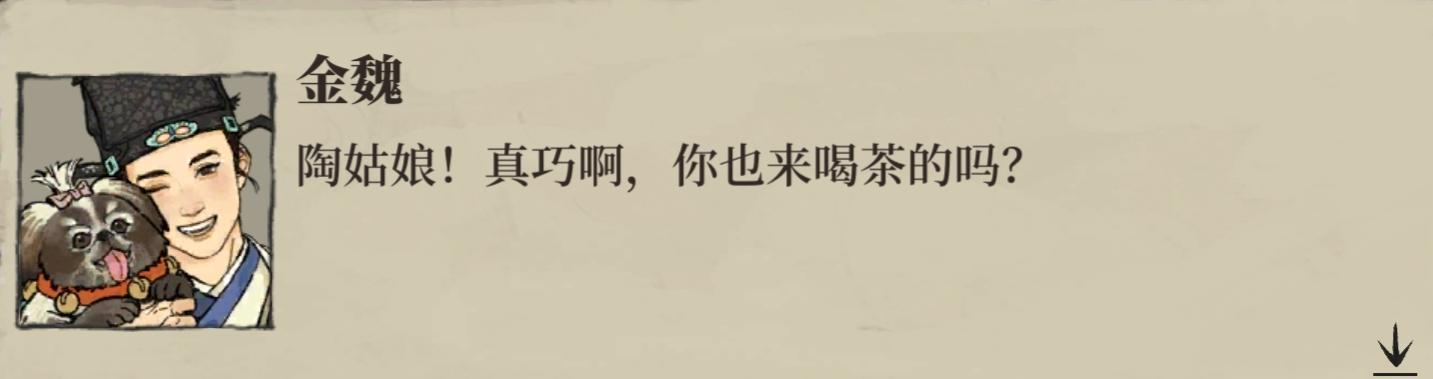 金魏
陶姑娘！真巧啊，你也来喝茶的吗？